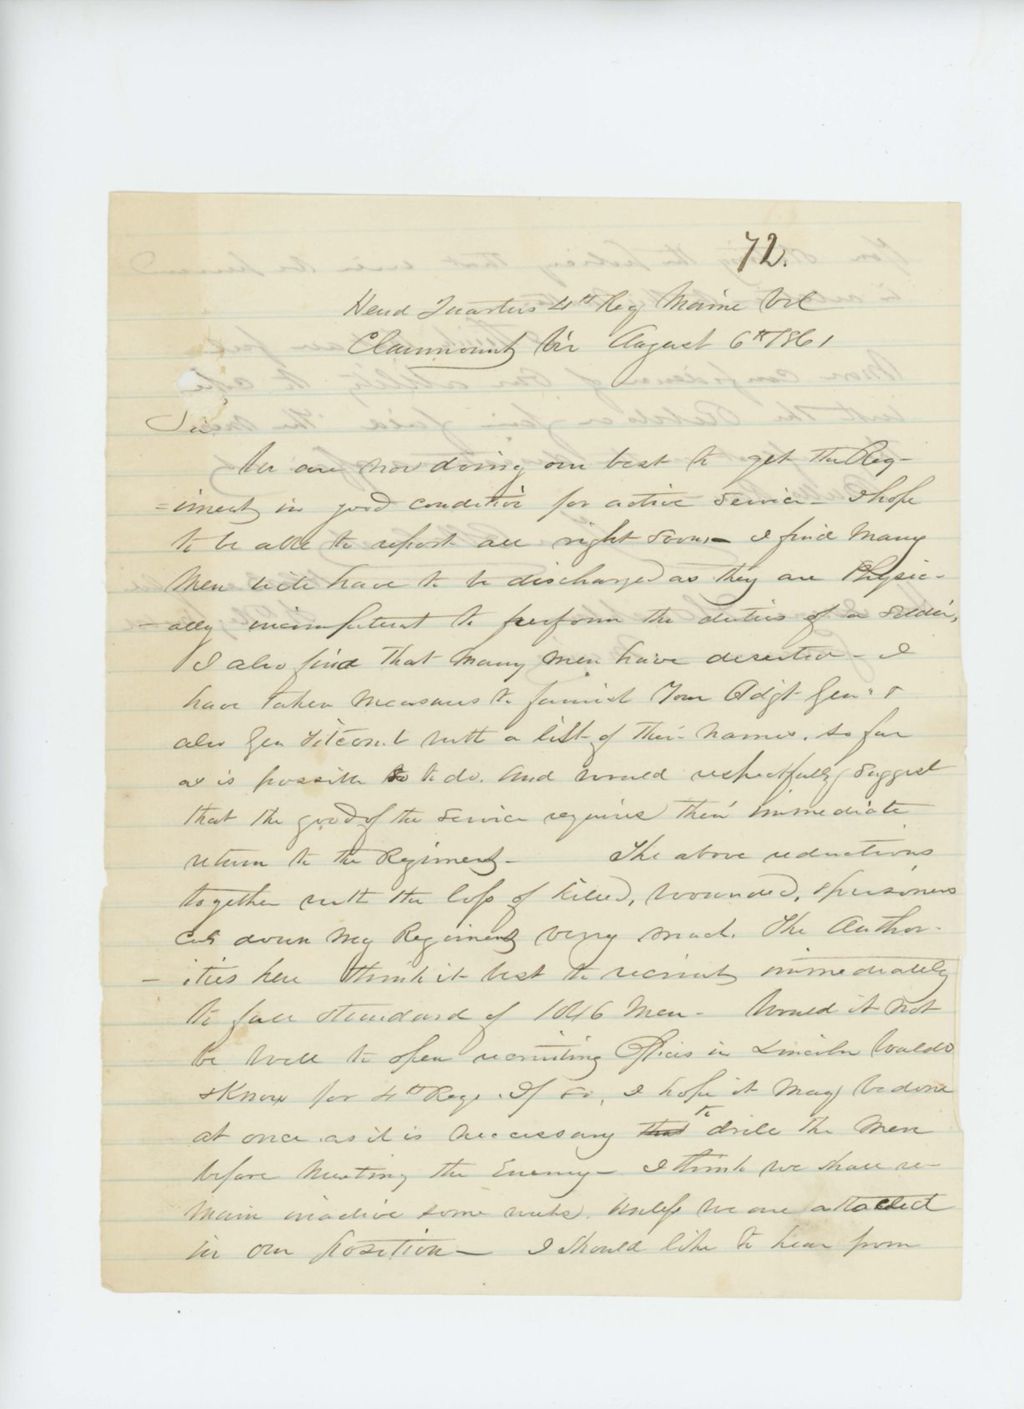 72.
Head Quarters 4th Reg Maine Vol
Clairmount Va August 6th 1861
Sir
We are now doing our best to get the Reg-
=iment in good condition for active service - I hope
to be able to report all right soon - I find many
Men will have to be discharged as they are Physic-
- ally incompetent to perform the duties of a soldier,
I also find that many men have deserted - I
have taken measures to furnish Your Adjt Genl &
also Gen Titcomb with a list of their names, so far
as is possible to do. And would respectfully suggest
that the good of the service requires their immediate
return to the Regiment - The above reductions
together with the loss of killed, wounded, & prisoners
cut down my Regiment very much. The Author-
- ities here think it best to recruit immediately
to full standard of 1046 Men - Would it not
be well to open recruiting Offices in Lincoln Waldo
& Knox for 4th Reg. If so, I hope it may be done
at once as it is necessary that to drill the Men
before meeting the Enemy - I think we shall re-
main inactive some weeks, unless we are attacked
in our position - I should like to hear from